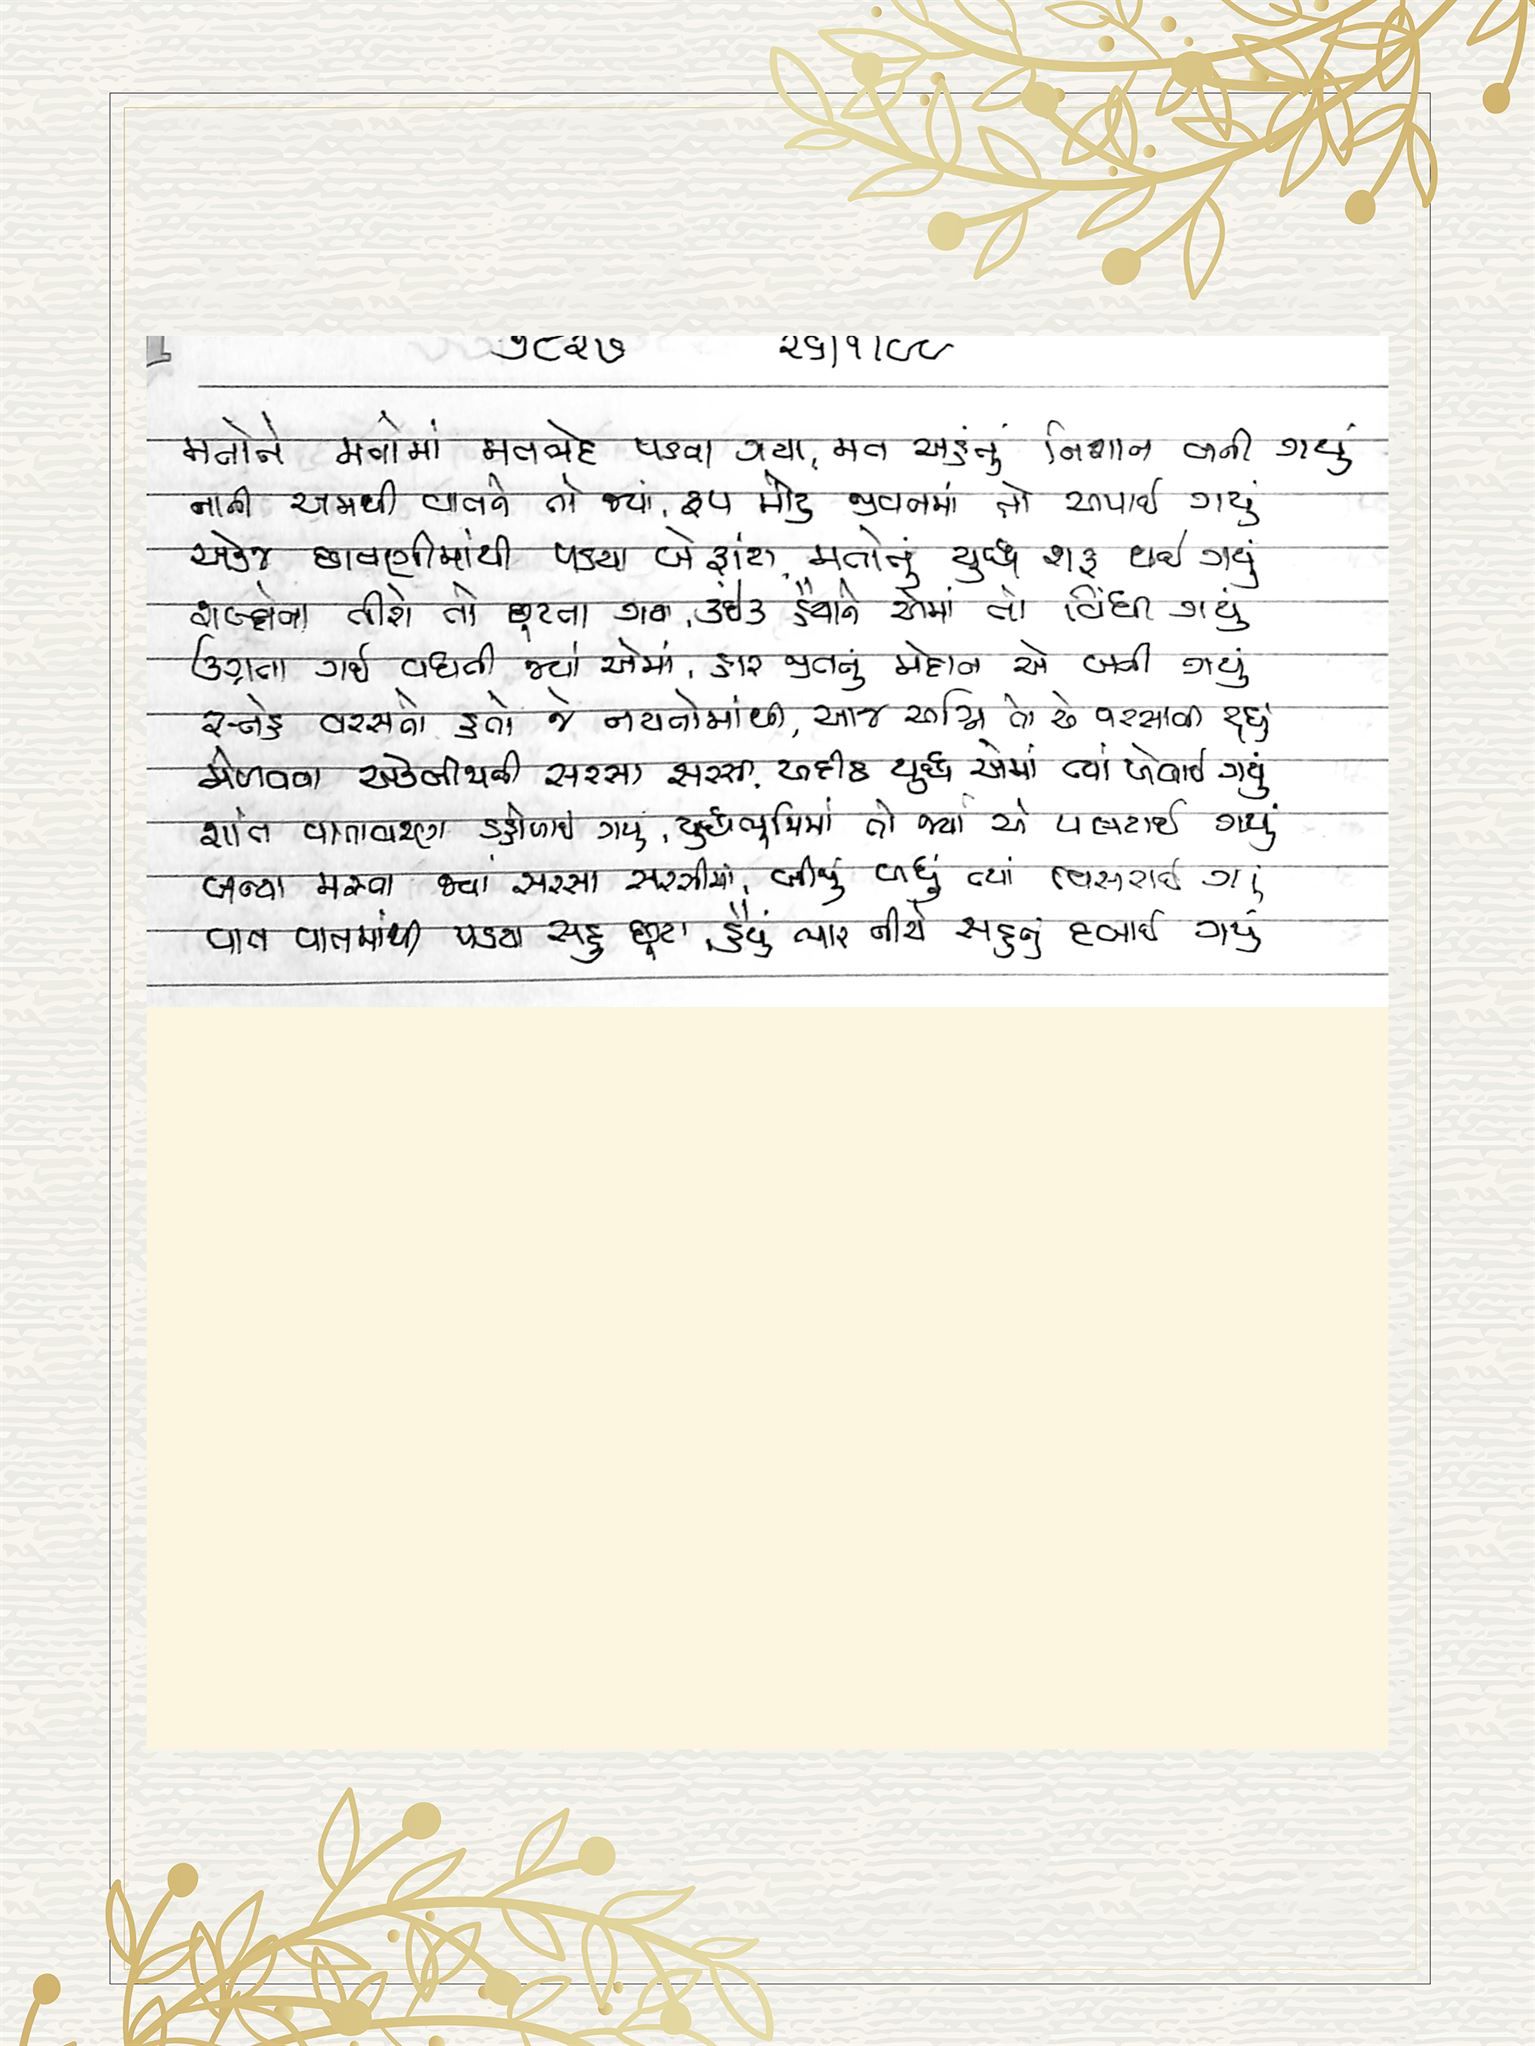 ૭૮૨૭ ૨૬/૧/૯૯
મનોને મનોમાં મતભેદ પડવા ગયા, મન અહંનું નિશાન બની ગયું
નાની અમથી વાતને તો જ્યાં, રૂપ મોટુ જીવનમાં તો અપાઈ ગયું
એકજ છાવણીમાંથી પડયા બે ફાંટા, મતોનું યુદ્ધ શરૂ થઈ ગયું
શબ્દોના તીરો તો છૂટતા ગયા, કંઈક હૈયાને એમાં તો વિંધી ગયું
ઉગ્રતા ગઈ વધતી જ્યાં એમાં, હાર જીતનું મેદાન એ બની ગયું
સ્નેહ વરસતો હતો જે નયનોમાંથી, આજ અગ્નિ તો એ વરસાવી રહ્યું
મેળવવા એકબીજાથી સરસા સરસી, અદીઠ યુદ્ધ એમાં ત્યાં ખેલાઈ ગયું
શાંત વાતાવરણ ડહોળાઈ ગયું, યુદ્ધભૂમિમાં તો જ્યાં એ પલટાઈ ગયું
બન્યા મસ્ત જ્યાં સરસા સરસીમાં, બીજું બધું ત્યાં વિસરાઈ ગયું
વાત વાતમાંથી પડયા સહુ છૂટા, હૈયું ભાર નીચે સહુનું દબાઈ ગયું